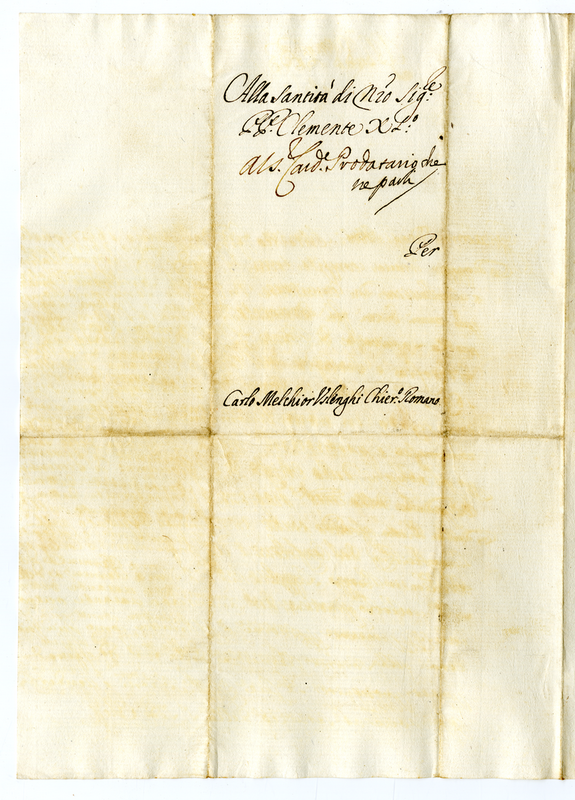 Alla Santità di Nro Sigre
PP. Clemente XI.o
Al S. Card. Prodatario che
ne parli
Per
Carlo Melchior Vslenghi Chier.o Romano